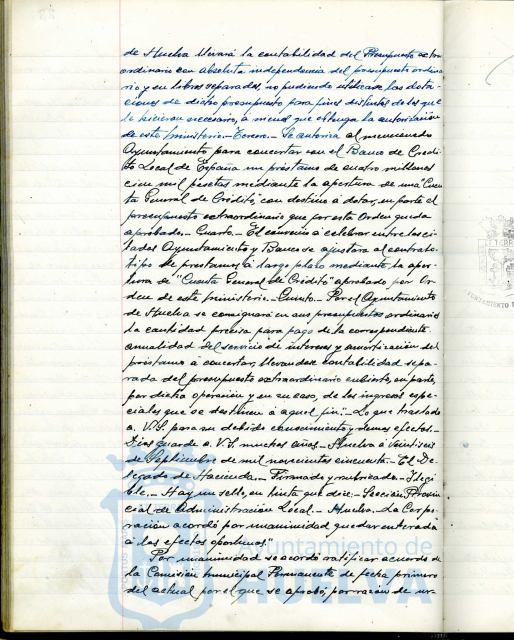 de Huelva llevará la contabilidad del Presupuesto extra-
ordinario con absoluta independencia del presupuesto ordina-
rio y en libros separados, no pudiendo utilizarse las dota-
ciones de dicho presupuesto para fines distintos de los que
le hicieron necesario, a menos que obtenga la autorización
de este Ministerio.- Tercero.- Se autoriza al mencionado
Ayuntamiento para concertar con el Banco de Crédi-
to Local de España un préstamo de cuatro millones
cien mil pesetas mediante la apertura de una "Cuen-
ta General de Crédito" con destino a dotar, en parte el
presupuesto extraordinario que por esta Orden queda
aprobado.- Cuarto.- El convenio a celebrar entre los ci-
tados Ayuntamiento y Banco se ajustará al contrato-
tipo de préstamos a largo plazo mediante la aper-
tura de "Cuenta General de Crédito" aprobado por Or-
den de este Ministerio.- Quinto.- Por el Ayuntamiento
de Huelva se consignará en sus presupuestos ordinarios
la cantidad precisa para pago de la correspondiente
anualidad del servicio de intereses y amortización del
préstamo a concertar, llevándose contabilidad sepa-
rada del presupuesto extraordinario cubierto, en parte,
por dicha operación y en su caso, de los ingresos espe-
ciales que se destinen a aquel fin".- Lo que traslado
a V.S. para su debido conocimiento y demás efectos.-
Dios guarde a V.S. muchos años.- Huelva a veintiseis
de Septiembre de mil novecientos cincuenta.- El De-
legado de Hacienda.- Firmado y rubricado.- Ilegi-
ble.- Hay un sello, en tinta que dice: Sección Provin-
cial de Administración Local.- Huelva. La Corpo-
ración acordó por unanimidad quedar enterada
a los efectos oportunos."
Por unanimidad se acordó ratificar acuerdo de
la Comisión municipal Permanente de fecha primero
del actual por el que se aprobó, por razón de ur-
Ayuntamiento de
HUELVA